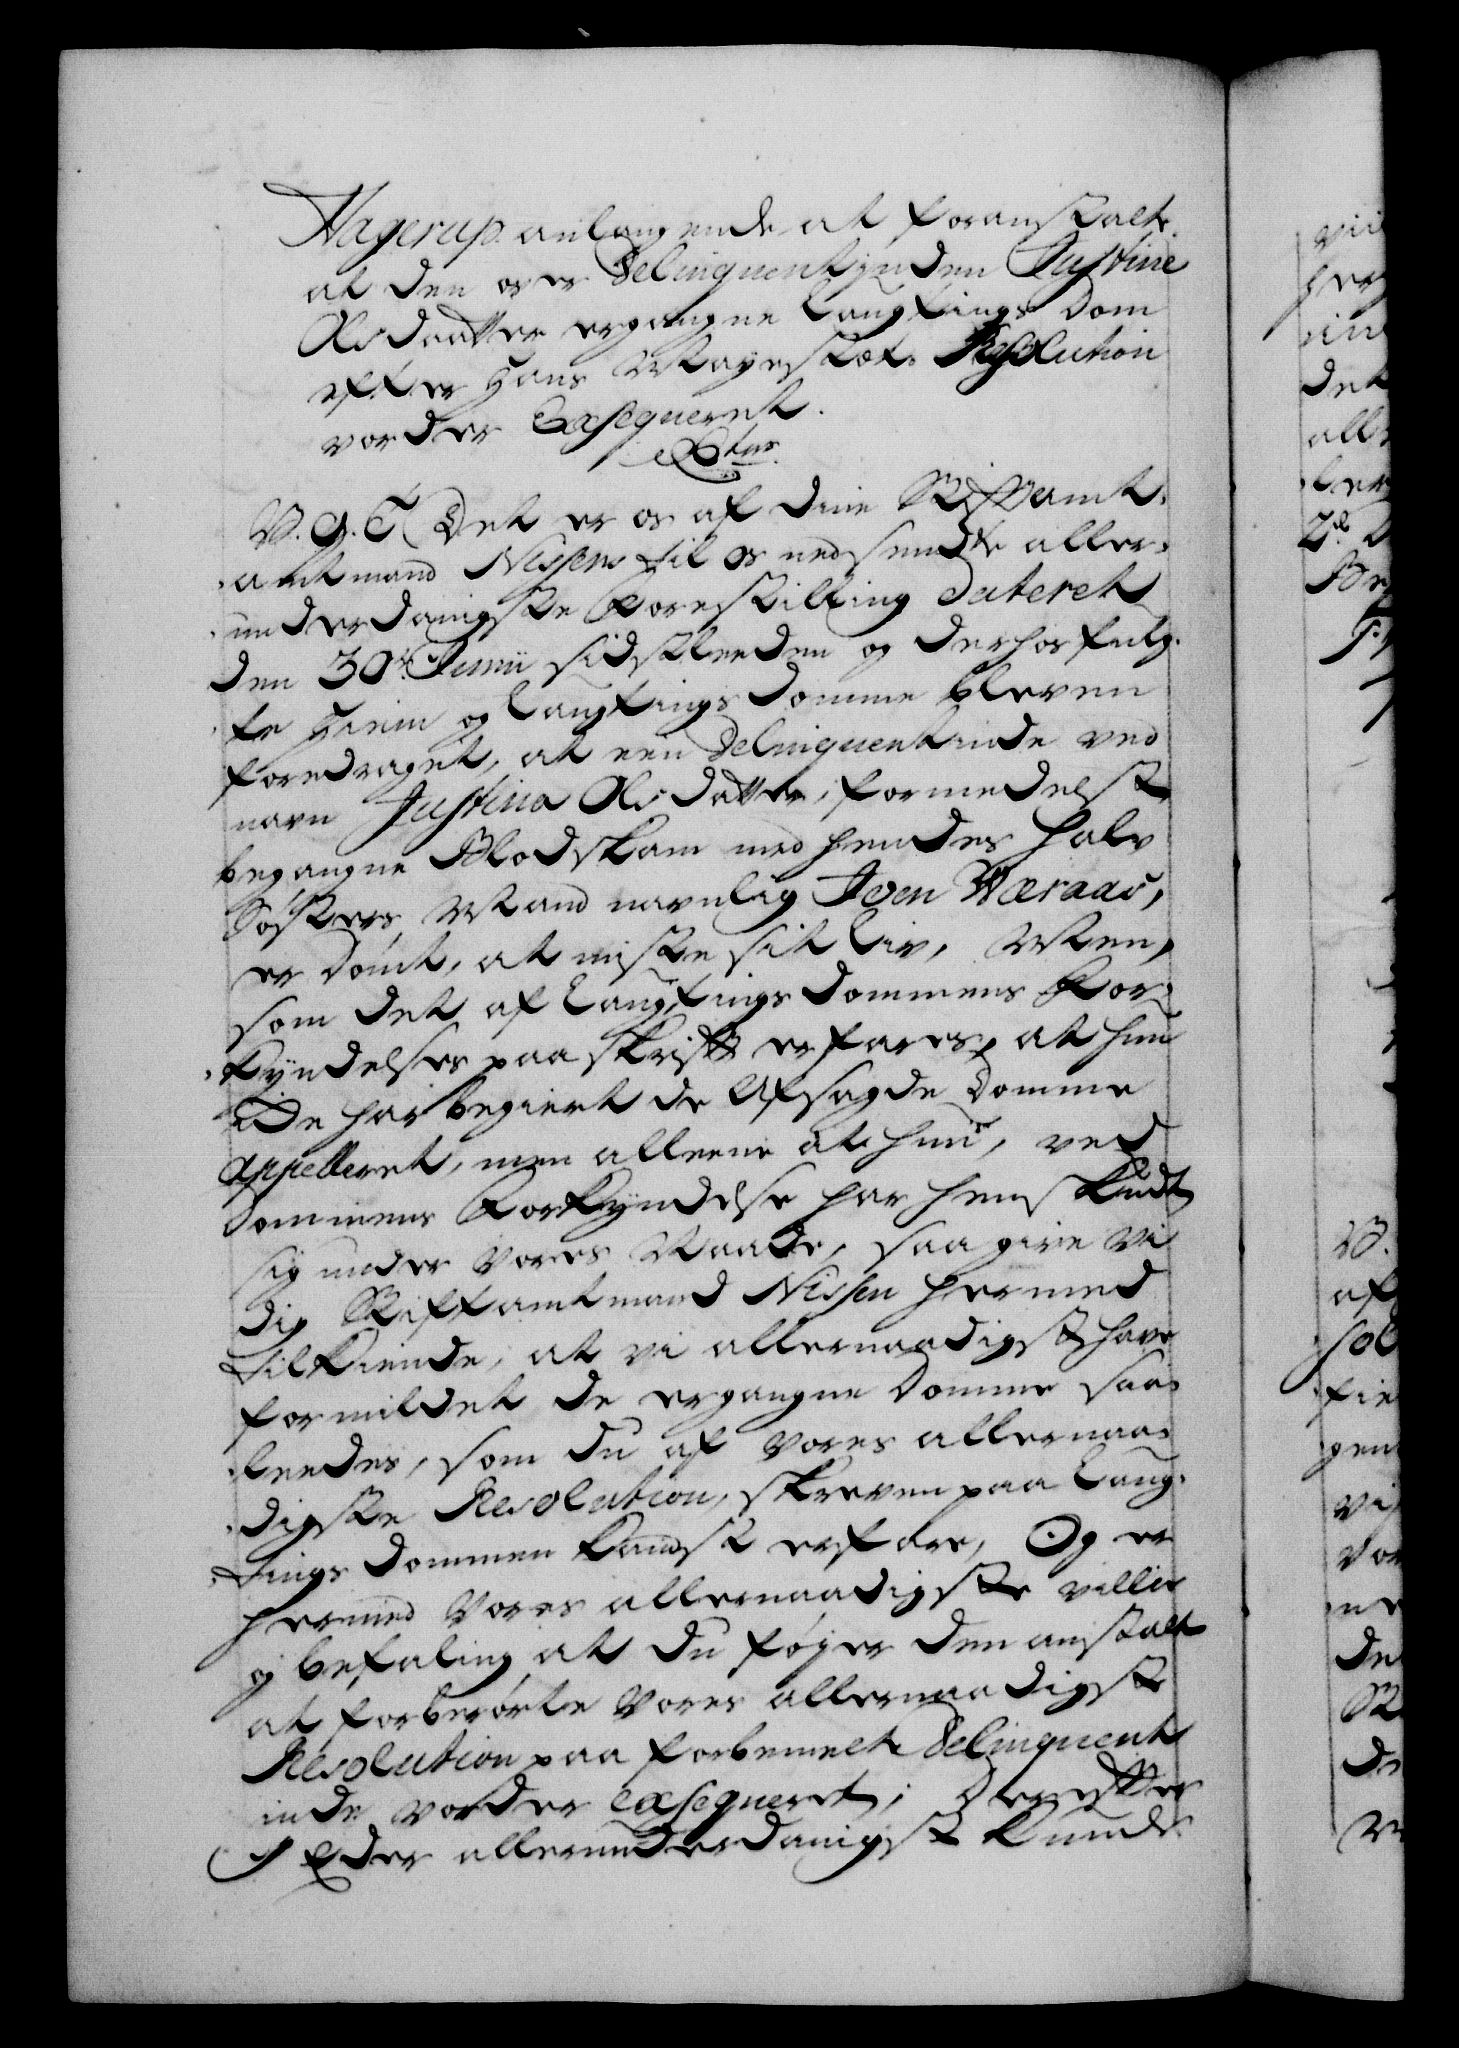 Hagerup anlangende at foranstalte
at den over Delinquentinden Justine
Olsdaatter ergangne Laugtings Dom
efter Hans Mayestæts Resolution
vorder Exseqveret.
C5tus
V. G. T. Det er os af din Stiftamt-
amtmand Nissens til os nedsendte aller-
underdanigste Forestilling dateret
den 30te Junii sidstleeden og derhos fulg-
te Hiem og Laugtings Domme bleven
foredraget, at een Delinquentinde ved
navn Justina Olsdatter, formedelst
begangne Blodskam med hendes halv
Søsters Mand navnlig Iven Weraas,
er dømt, at miste sit liv, Men,
som det af Laugtings Dommens For-
kyndelses paaskrift erfares, at hun
icke har begiert de Afsagde Domme
appelleret, men alleene at hun, ved
Dommens Forkyndelse har henskudt
sig under Vores Naade, saa give Vi
dig Stiftamtmand Nissen hermed
tilkiende, at vi allernaadigst have
formildet de ergangne Domme saa-
leedes, som du af Vores allernaa-
digste Resolution, skreven paa Laug-
tings Dommen kandst erfare, Og er
hermed Vores allernaadigste villie
og befaling at du føyer den anstalt
at forberørte Vores allernaadigste
Resolution paa forbemelte Delinquent
inde vorder exseqveret; Derefter
I Eder allerunderdanigst kunde